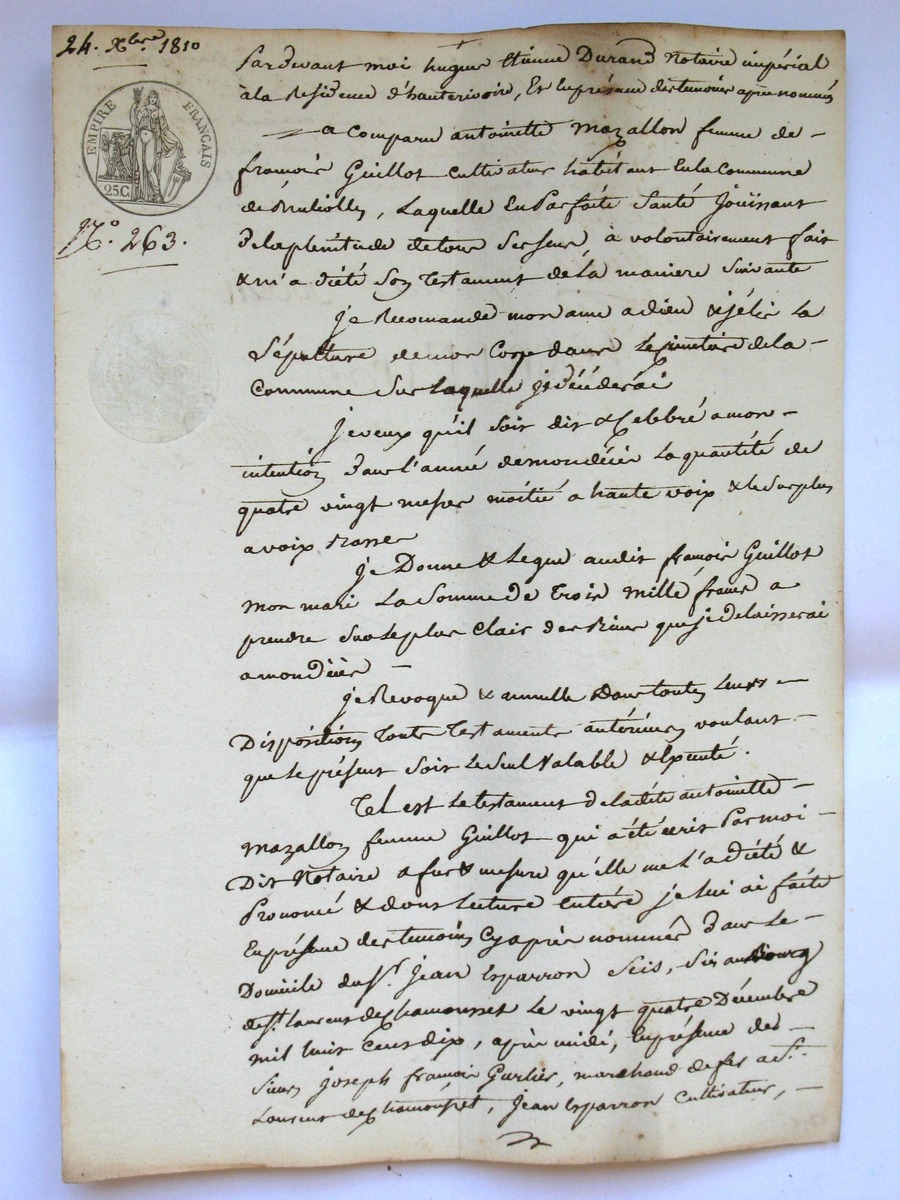 24. Xbre. 1810
EMPIRE FRANÇAIS
25C
N.o 263.
Pardevant moi hugue Etienne Durand Notaire impérial
à la Residence d'hauterivoire, Et En présence des temoins après nommés
a Comparu antoinette Mazallon femme de
françois Guillot Cultivateur habitant En la Commune
de Bruliolles, Laquelle En Parfaite Santé Jouissant
de la plenitude de tous Ses Sens, à volontairement fait
& m'a dicté Son Testament de La maniere Suivante
je Recomande mon ame a dieu & j'élis La
Sépulture de mon Corps dans Le Cimetiere de la
Commune Sur Laquelle je décéderai
je veux qu'il Soit dit & Celebré a mon
intention dans l'année de mon décès La quantité de
quatre vingt messes moitié a haute voix & le Surplus
a voix Basse
je Donne & Legue audit françois Guillot
mon mari La Somme De trois mille francs a
prendre Sur Le plus Clair des Biens que je delaisserai
a mon décès
je Revoque & annulle dans toutes Leurs
Dispositions touts Testaments antérieurs voulant
que Le présent Soit Le Seul Valable & Exécuté.
Tel est Le testament de ladite antoinette
Mazallon femme Guillot qui a été écrit Par moi
Dit Notaire a fur & mesure qu'elle me L'a dicté &
Prononcé & dont Lecture Entiére je lui ai faite
En présence des temoins Cy après nommés dans Le
Domicile du Sr. Jean Esparron Scis, Sis au Bourg
de St. Laurent de Chamousset Le vingt quatre Décembre
mil huit Cent dix, après midi, En présence des
Sieurs joseph françois Gurlier, marchand de fer a St.
Laurent de Chamousset, Jean Esparron Cultivateur,